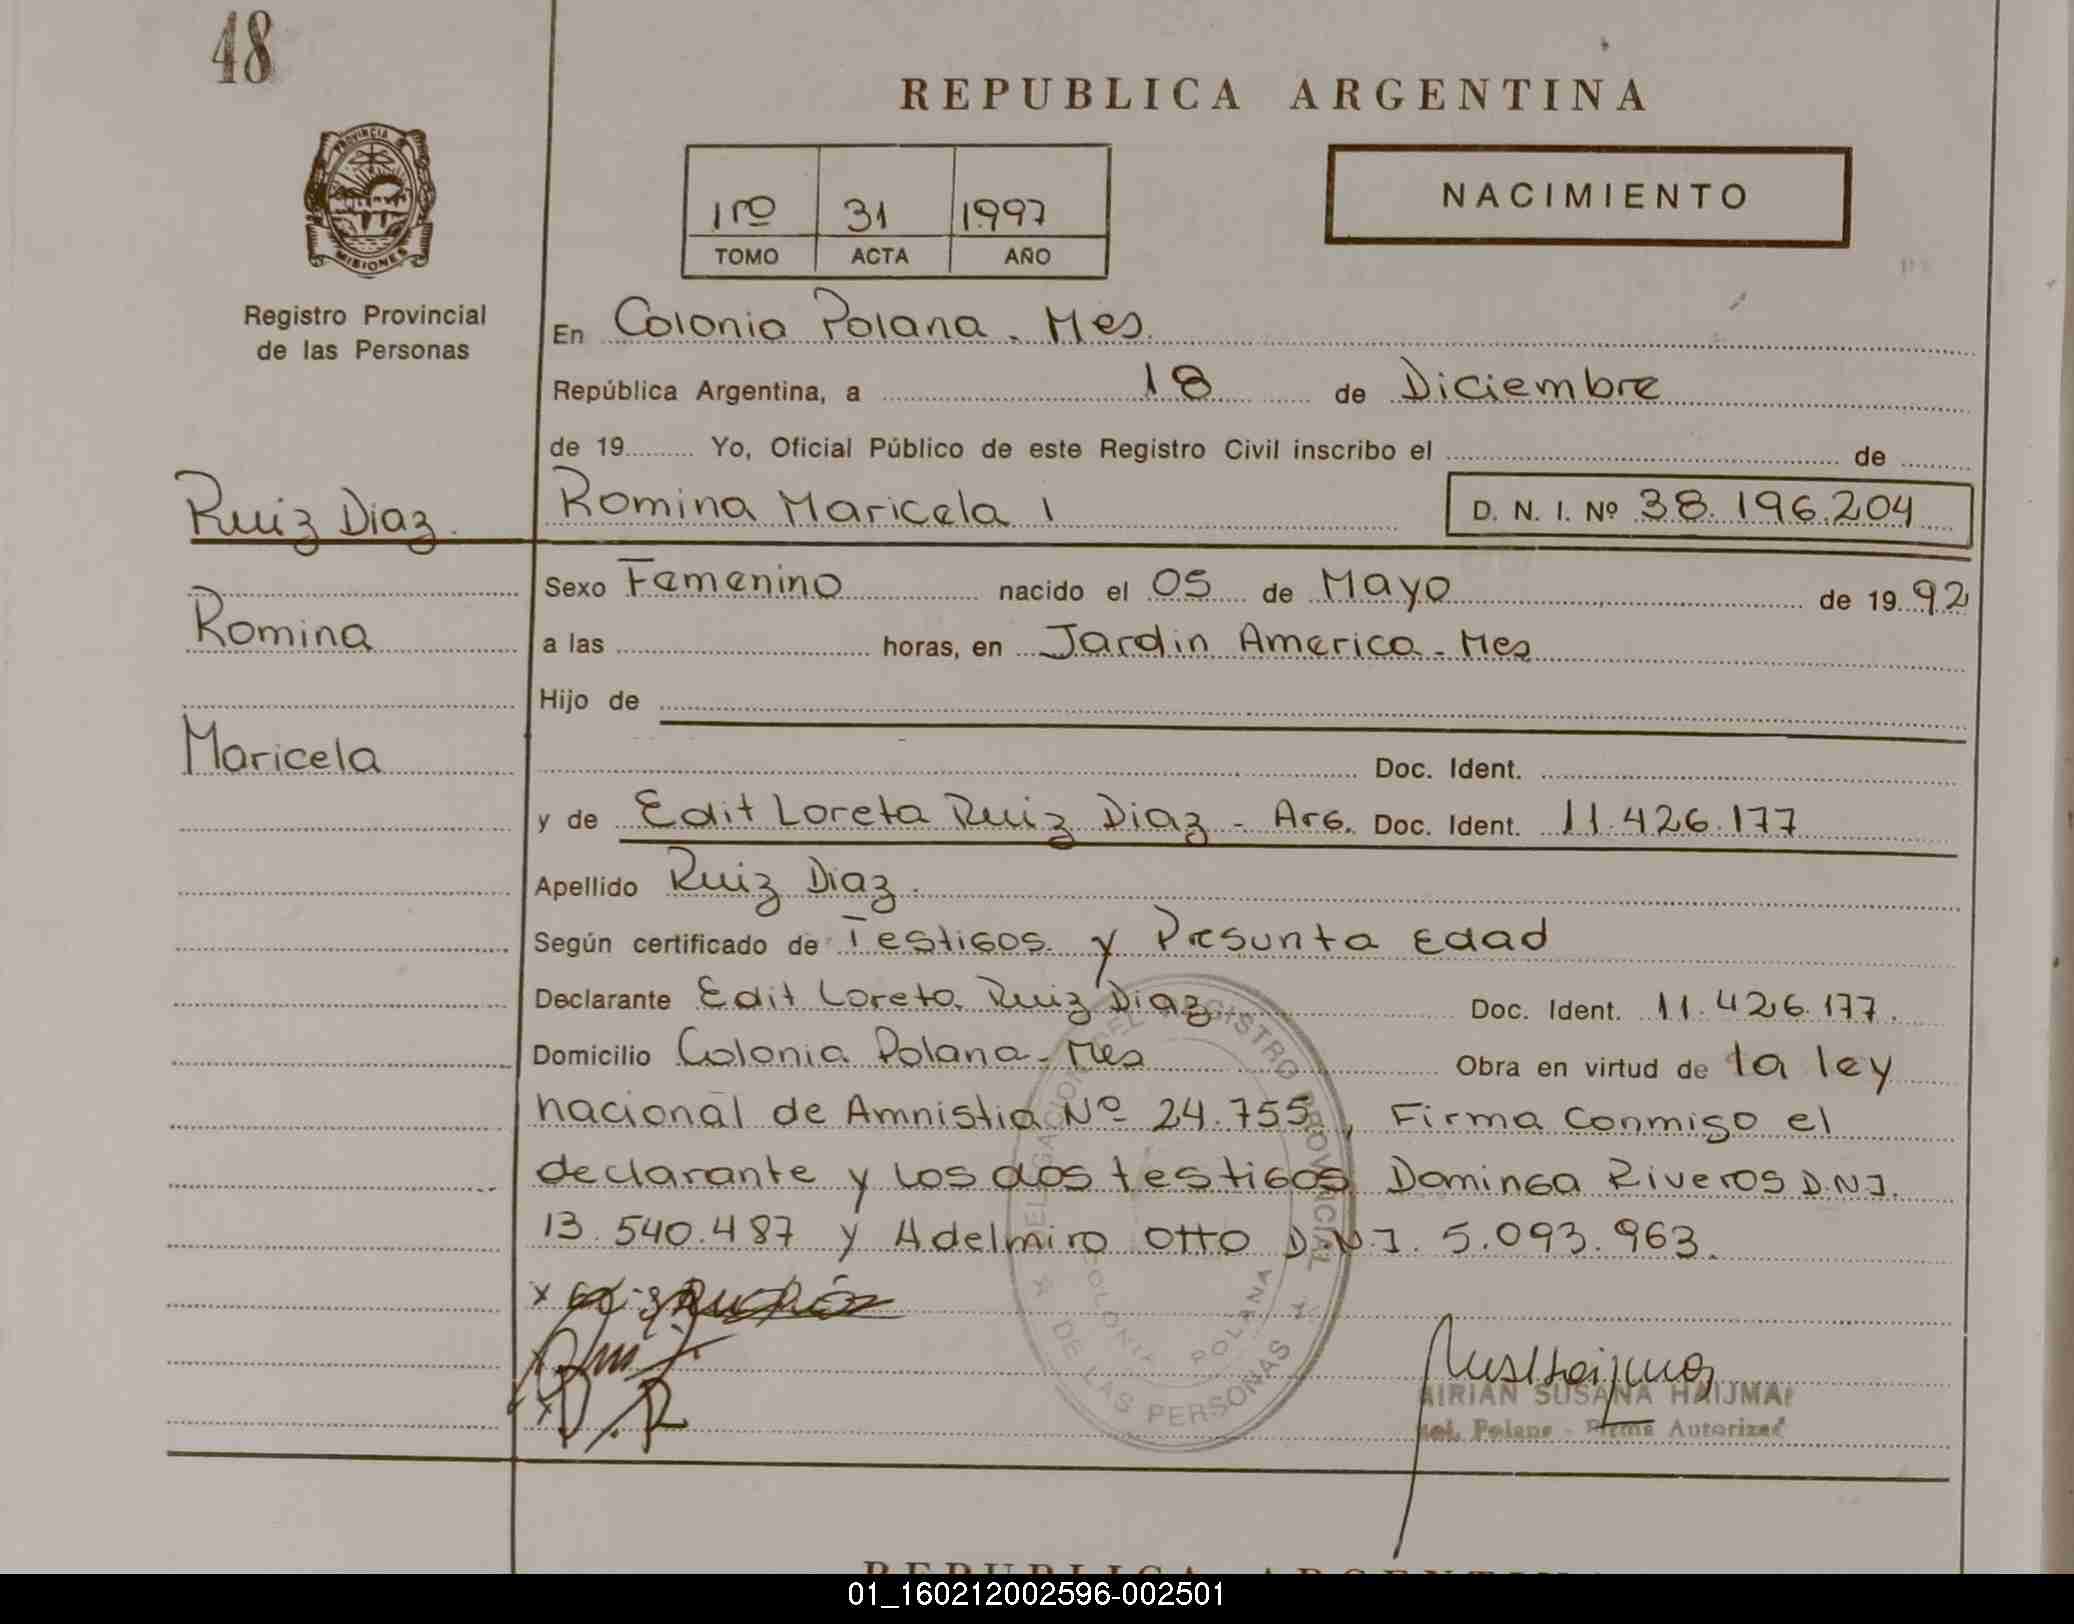 48
REPUBLICA ARGENTINA
PROVINCIA
MISIONES
1ro 31 1997
TOMO ACTA AÑO
NACIMIENTO
Registro Provincial
de las Personas
En Colonia Polana. Mes.
República Argentina, a 18 de Diciembre
de 19 Yo, Oficial Público de este Registro Civil inscribo el de
Ruiz Diaz. Romina Maricela 1 D. N. I. Nº 38.196.204
Sexo Femenino nacido el 05 de Mayo de 19 92
Romina
a las horas, en Jardin America - Mes
Hijo de
Maricela
Doc. Ident.
y de Edit Loreta Ruiz Diaz - Arg. Doc. Ident. 11.426.177
Apellido Ruiz Diaz.
Según certificado de Testigos y Presunta Edad
Declarante Edit Loreta Ruiz Diaz Doc. Ident. 11.426.177.
Domicilio Colonia Polana - Mes Obra en virtud de la ley
nacional de Amnistia Nº 24.755, Firma Conmigo el
declarante y los dos testigos Dominga Riveros D.N.I.
13.540.487 y Adelmiro Otto D.N.I. 5.093.963.
DELEGACION DEL REGISTRO PROVINCIAL
DE LAS PERSONAS
COLONIA POLANA
D. R.
MIRIAN SUSANA HAIJMA
Col. Polana - Firma Autorizad
REPUBLICA ARGENTINA
01_160212002596-002501